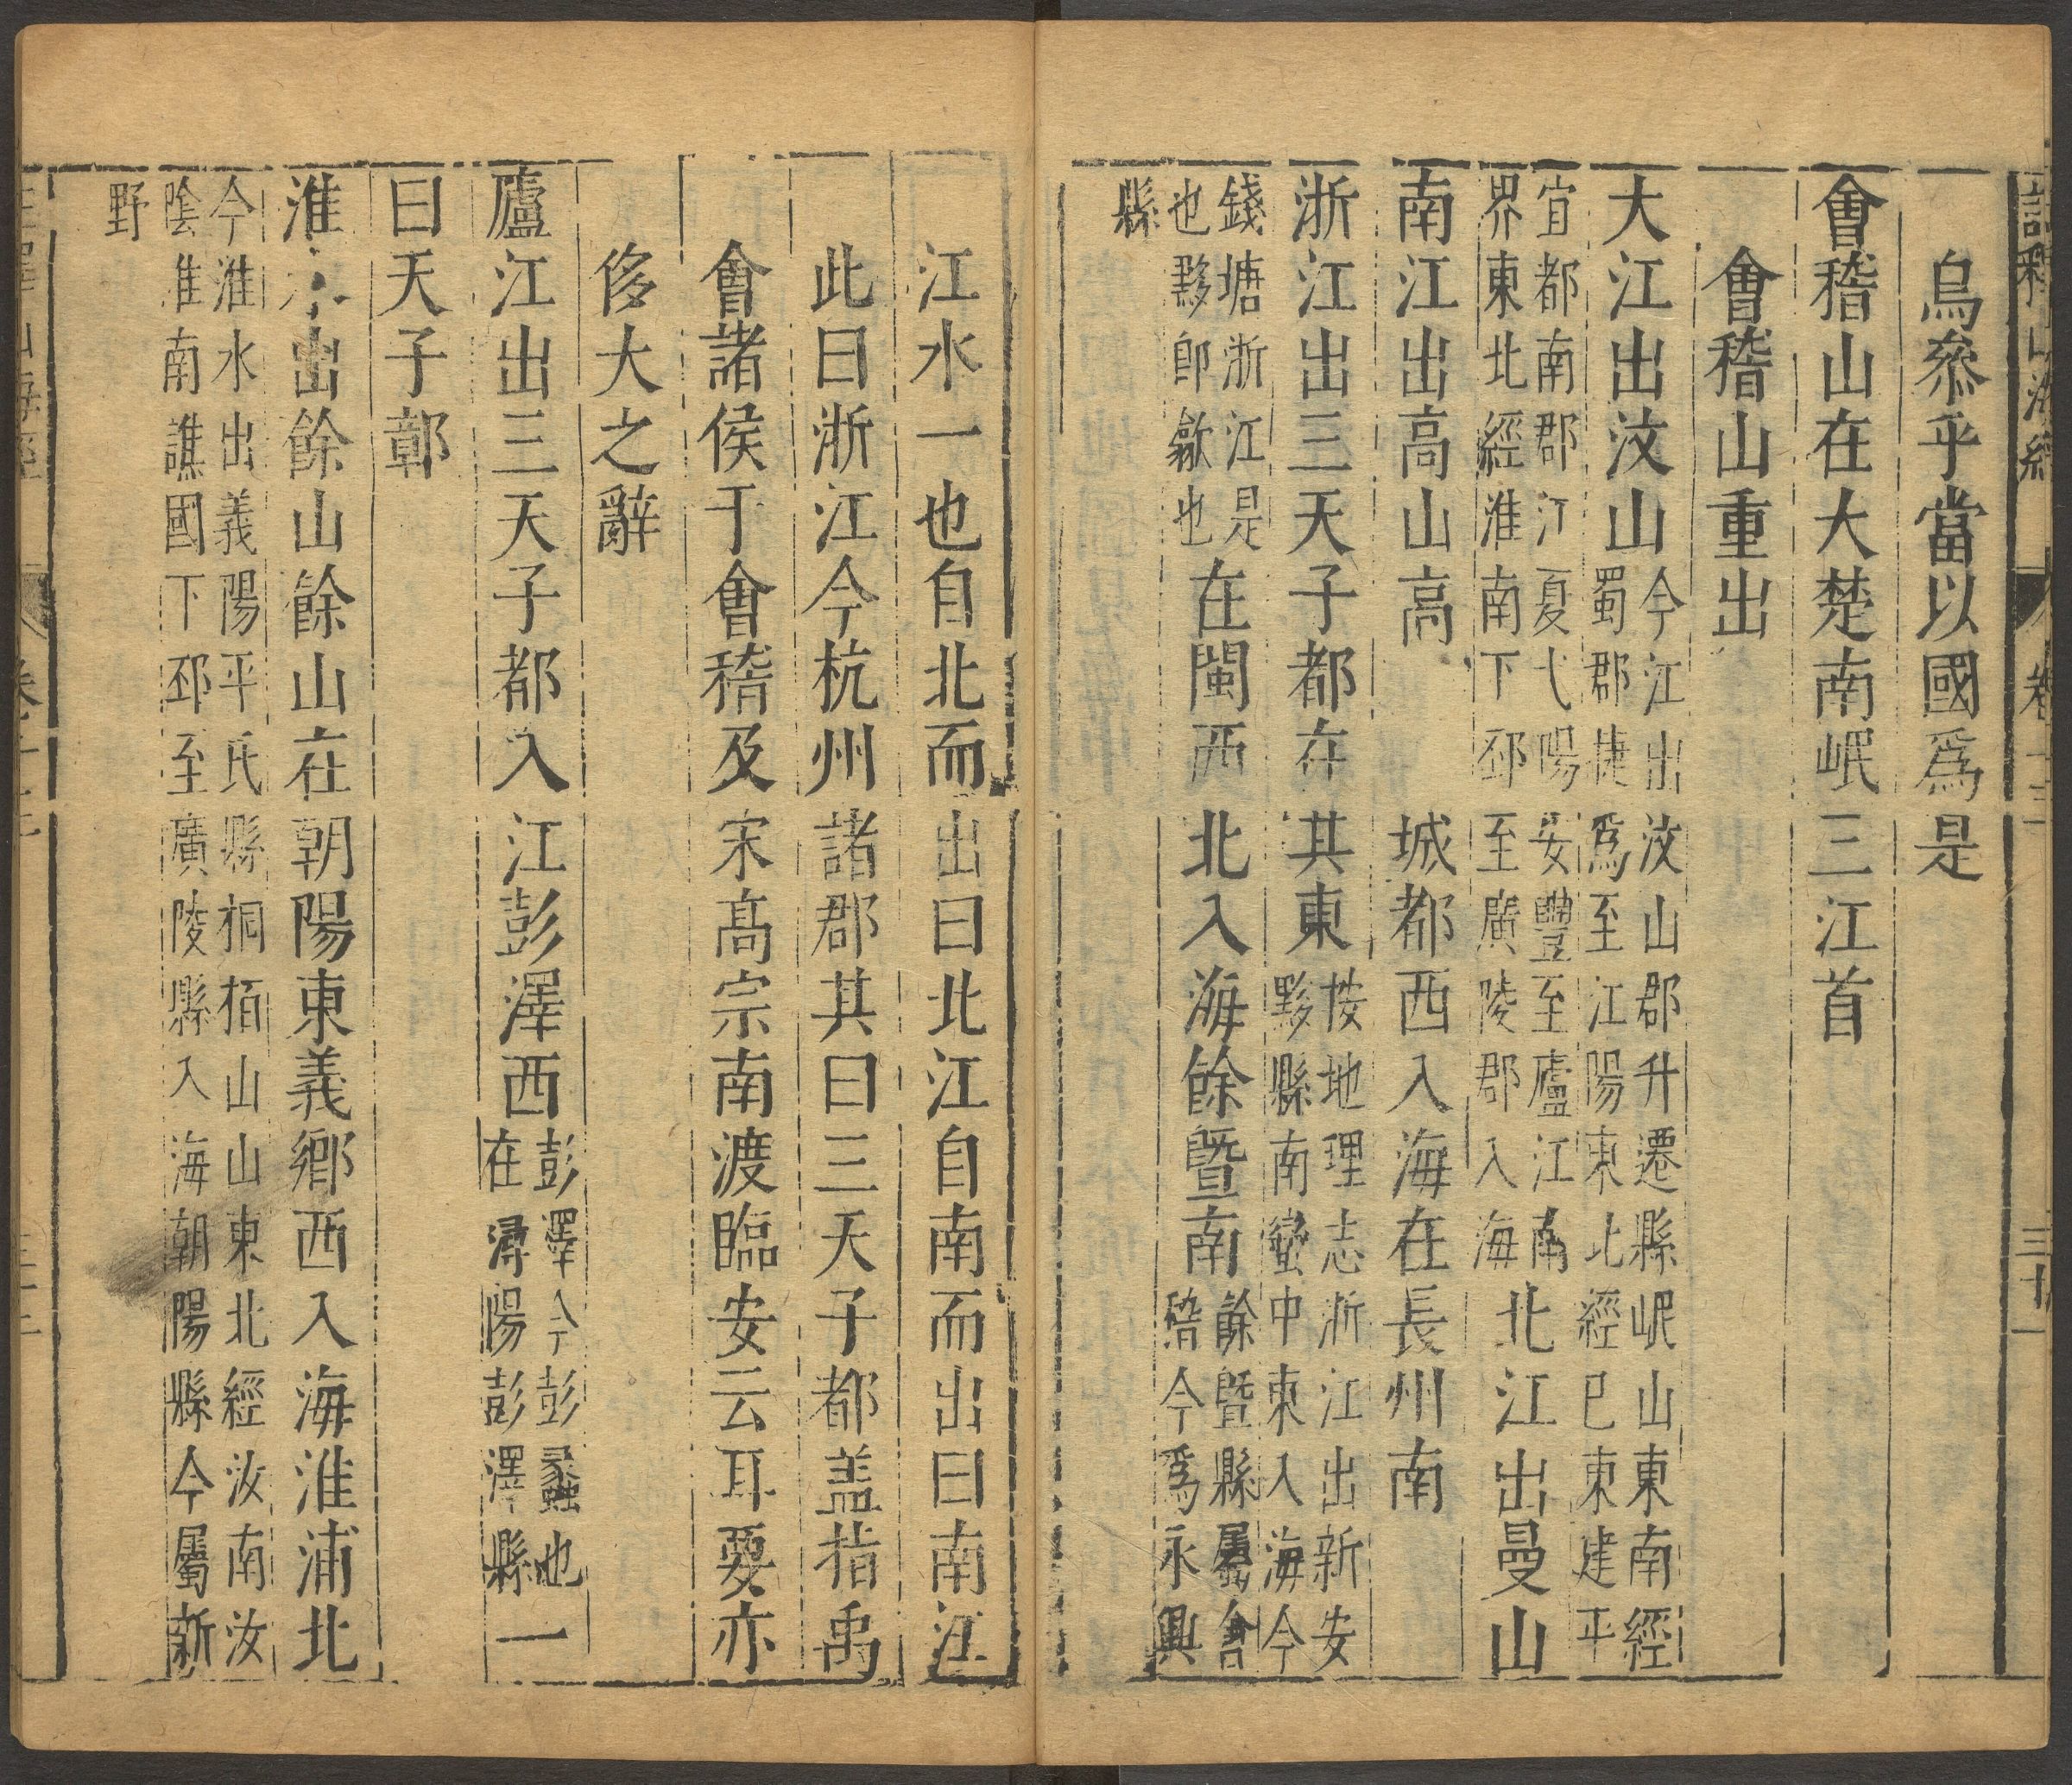 註釋山海經 卷十三 三十一
烏叅乎當以國爲是
會稽山在大楚南岷三江首
會稽山重出
大江出汶山今江出汶山郡升遷縣岷山東南經蜀郡揵爲至江陽東北經巴東建平
宜都南郡江夏弋陽安豐至廬江南界東北經淮南下邳至廣陵郡入海北江出曼山
南江出高山高城都西入海在長州南
浙江出三天子都在其東按地理志浙江出新安黟縣南蠻中東入海今
錢塘浙江是也黟即歙也在閩西北入海餘暨南餘暨縣屬會稽今爲永興
縣
江水一也自北而出曰北江自南而出曰南江
此曰浙江今杭州諸郡其曰三天子都盖指禹
會諸侯于會稽及宋高宗南渡臨安云耳要亦
侈大之辭
廬江出三天子都入江彭澤西彭澤今彭蠡也在潯陽彭澤縣一
曰天子鄣
淮水出餘山餘山在朝陽東義鄉西入海淮浦北
今淮水出義陽平氏縣桐栢山山東北經汝南汝陰淮南譙國下邳至廣陵縣入海朝陽縣今屬新
野